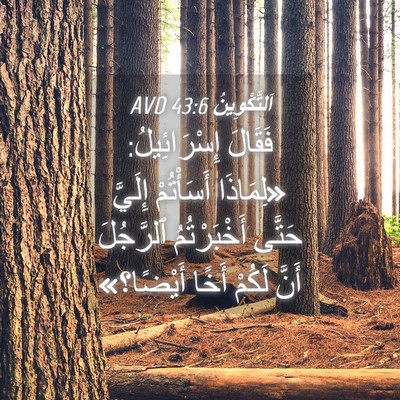 اَلتَّكْوِينُ 43:6 AVD
فَقَالَ إِسْرَائِيلُ:
«لِمَاذَا أَسَأْتُمْ إِلَيَّ
حَتَّى أَخْبَرْتُمُ ٱلرَّجُلَ
أَنَّ لَكُمْ أَخًا أَيْضًا؟»